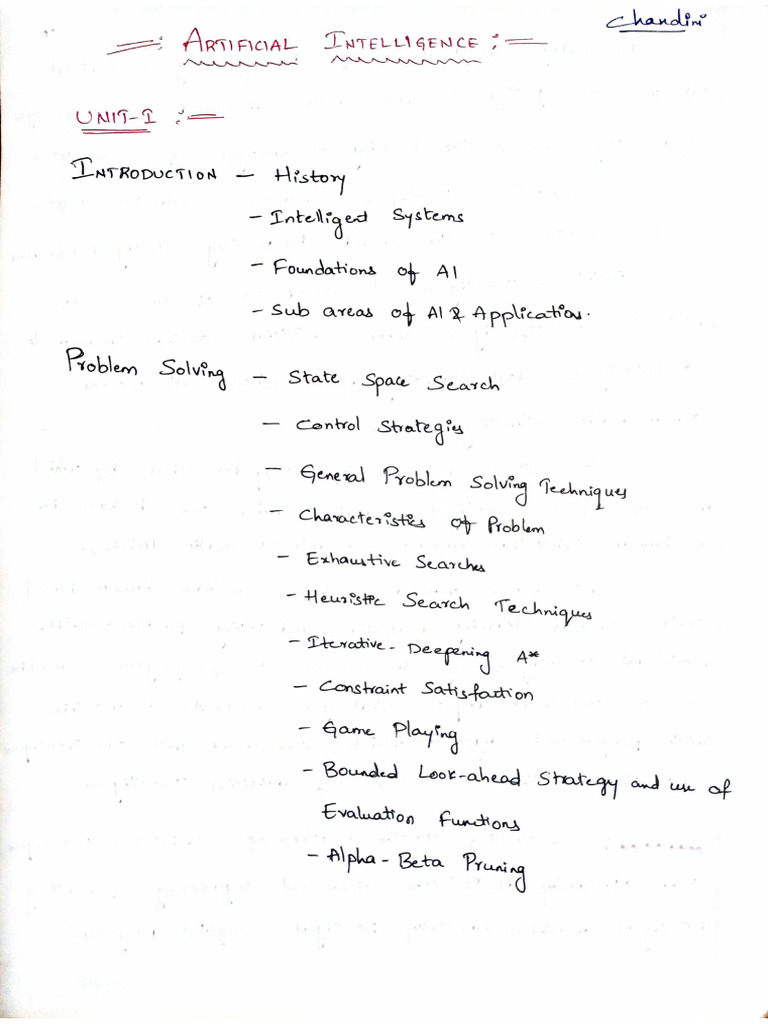 Chandini
=: ARTIFICIAL INTELLIGENCE :=
UNIT-I :-
INTRODUCTION - History
- Intelliged Systems
- Foundations of AI
- Sub areas of AI & Application.
Problem Solving - State Space Search
- Control Strategies
- General Problem Solving Techniques
- Characteristics of Problem
- Exhaustive Searches
- Heuristic Search Techniques
- Iterative-Deepening A*
- Constraint Satisfaction
- Game Playing
- Bounded Look-ahead Strategy and use of
Evaluation Functions
- Alpha-Beta Pruning